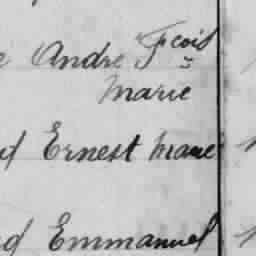 e André Fcois
Marie
d Ernest Marie
d Emmanuel